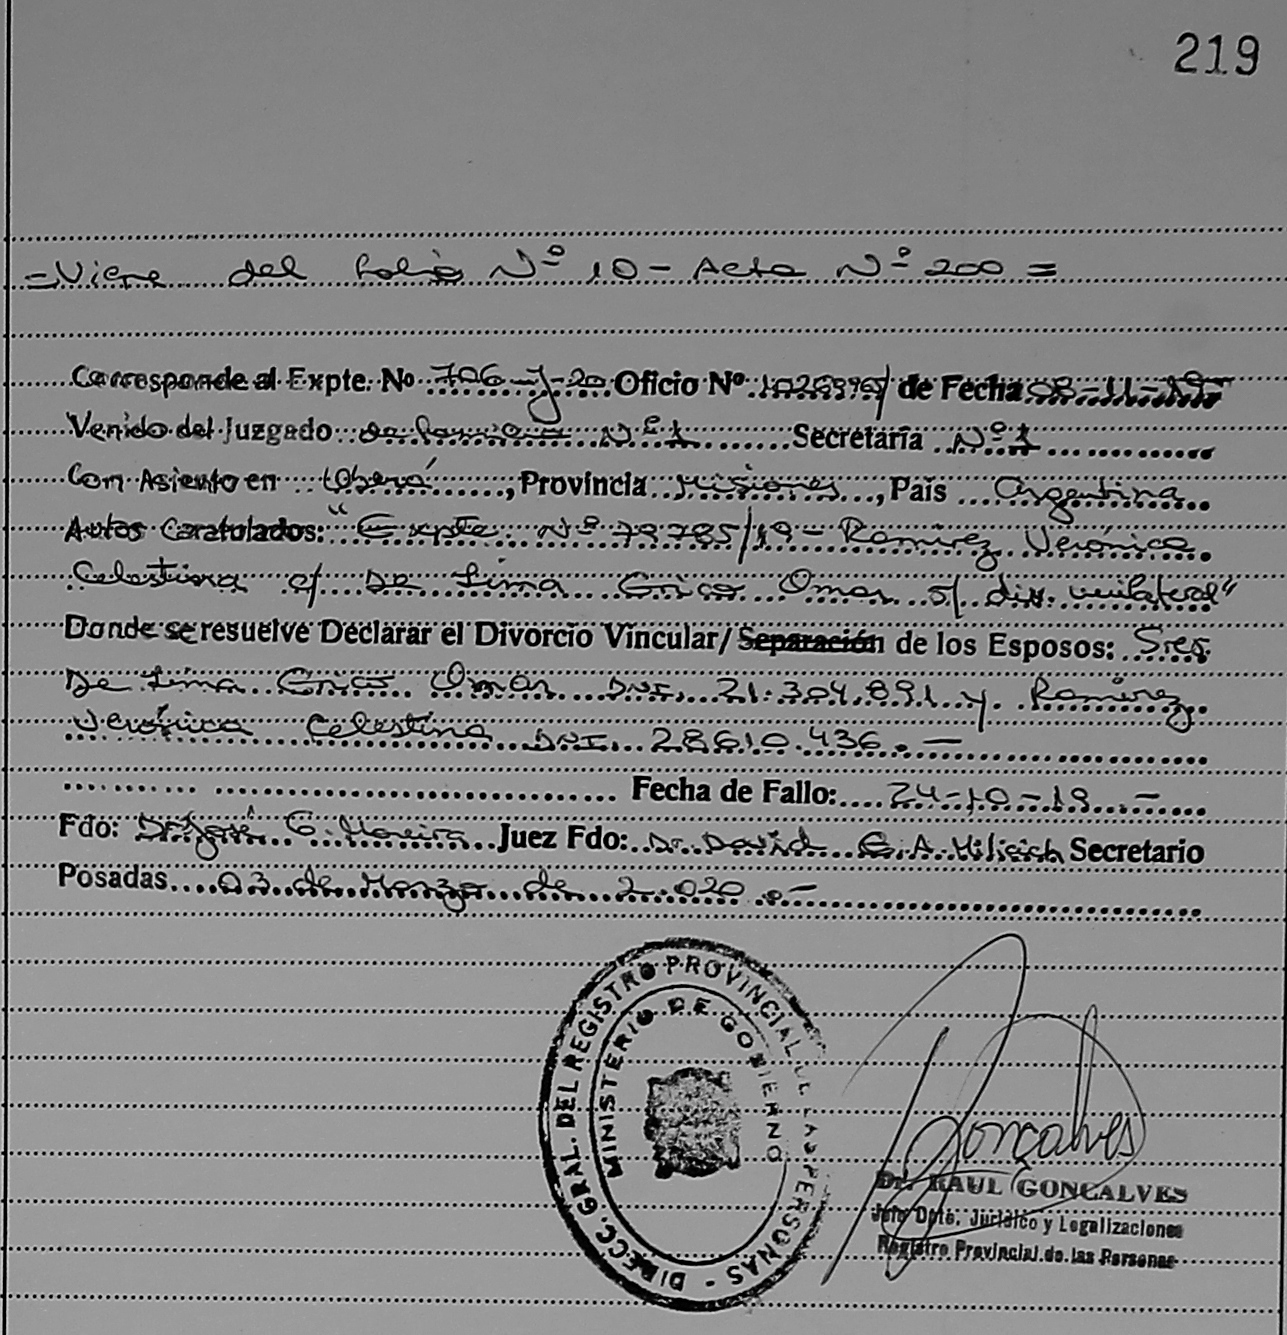 219
=Viene del folio Nº 10 - Acta Nº 200 =
Corresponde al Expte. Nº 706-J-20 Oficio Nº de Fecha 08-11-19
Venido del Juzgado de Familia Nº 1 Secretaría Nº 1
Con Asiento en Oberá, Provincia Misiones, País Argentina
Autos Caratulados: "Expte. Nº 79785/19 - Ramirez Verónica
Celestina c/ De Lima Erico Omar s/ div. unilateral"
Donde se resuelve Declarar el Divorcio Vincular/ Separación de los Esposos: Sres
De Lima Erico Omar DNI. 21.304.891 y Ramirez
Verónica Celestina DNI. 28610.436.-
Fecha de Fallo: 24-10-19.-
Fdo: Dr. José G. Moreira Juez Fdo: Dr. David E. A. Milicich Secretario
Posadas 03 de Marzo de 2.020.-
DIRECC. GRAL. DEL REGISTRO PROVINCIAL DE LAS PERSONAS -
MINISTERIO DE GOBIERNO
Goncalves
Dr. RAUL GONCALVES
Jefe Dpto. Jurídico y Legalizaciones
Registro Provincial de las Personas